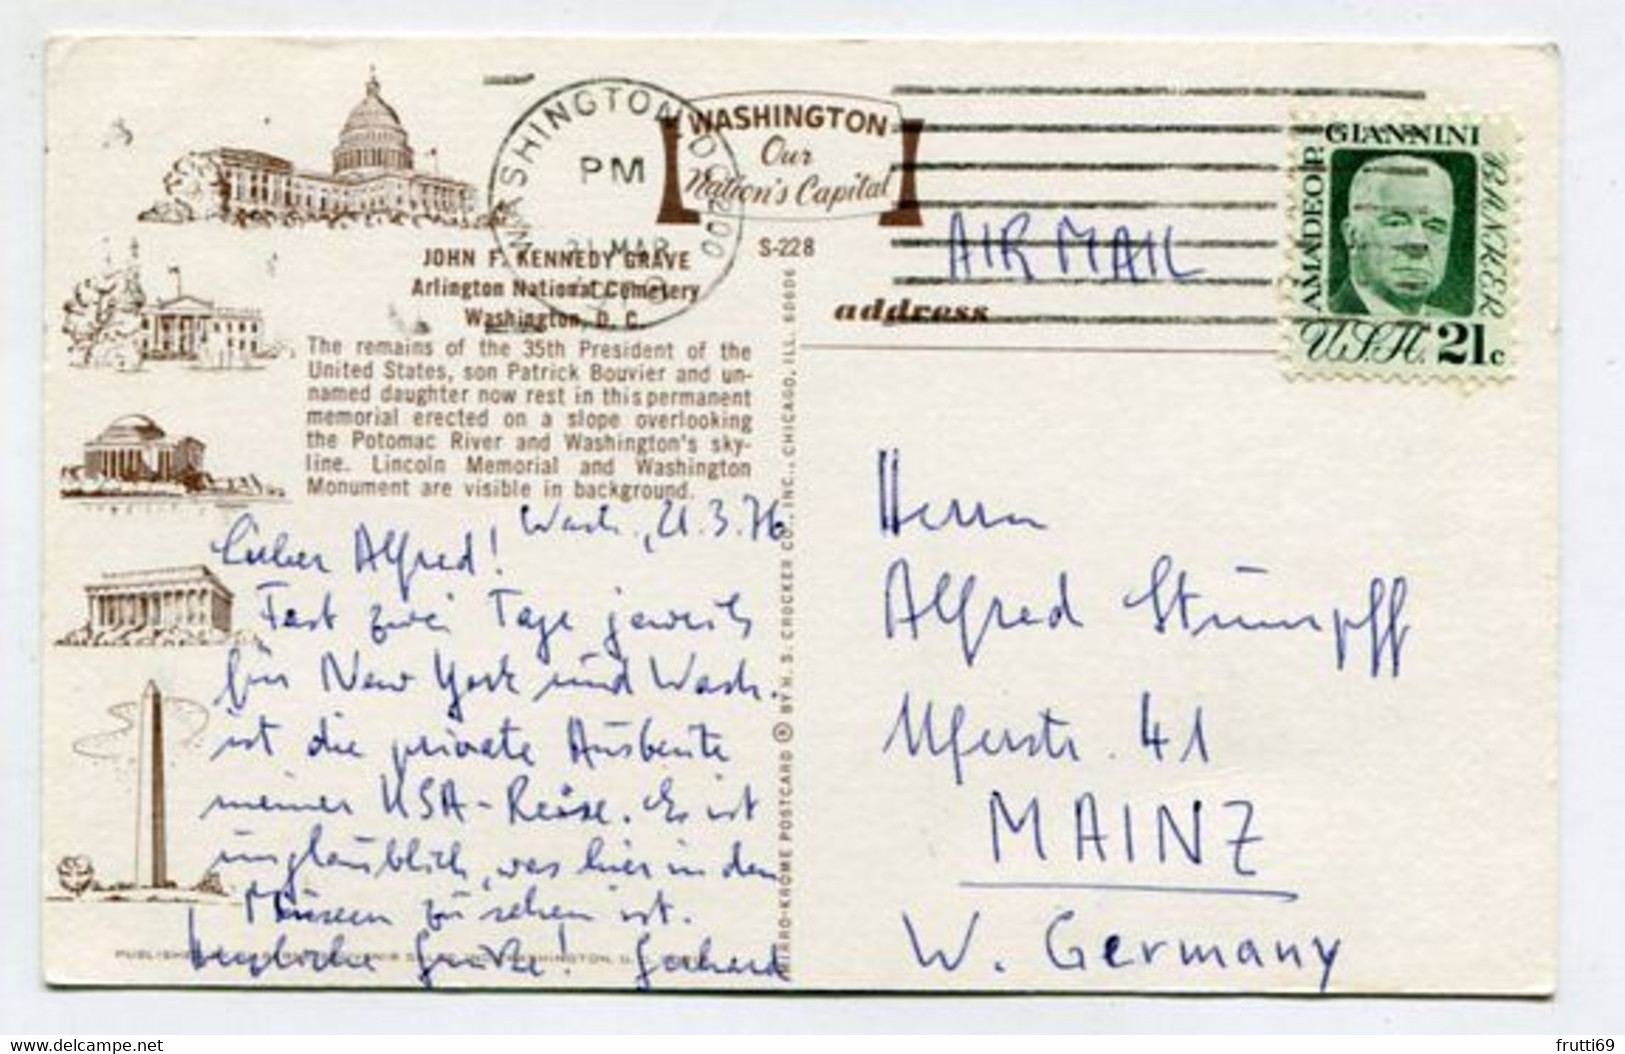 WASHINGTON
Our
Nation's Capital
WASHINGTON, D.C.
PM
21 MAR
200
S-228
JOHN F. KENNEDY GRAVE
Arlington National Cemetery
Washington, D. C.
The remains of the 35th President of the
United States, son Patrick Bouvier and un-
named daughter now rest in this permanent
memorial erected on a slope overlooking
the Potomac River and Washington's sky-
line. Lincoln Memorial and Washington
Monument are visible in background.
Wash., 21.3.76
Lieber Alfred!
Fast zwei Tage jeweils
für New York und Wash.
ist die private Ausbeute
meiner USA-Reise. Es ist
unglaublich, was hier in den
Museen zu sehen ist.
Herzliche Grüße! Gerhard
MIRRO-KROME POSTCARD ® BY H. S. CROCKER CO., INC., CHICAGO, ILL. 60606
AIR MAIL
address
AMADEO P. GIANNINI BANKER
U.S.A. 21c
Herrn
Alfred Stümpff
Uferstr. 41
MAINZ
W. Germany
www.delcampe.net
frutti69